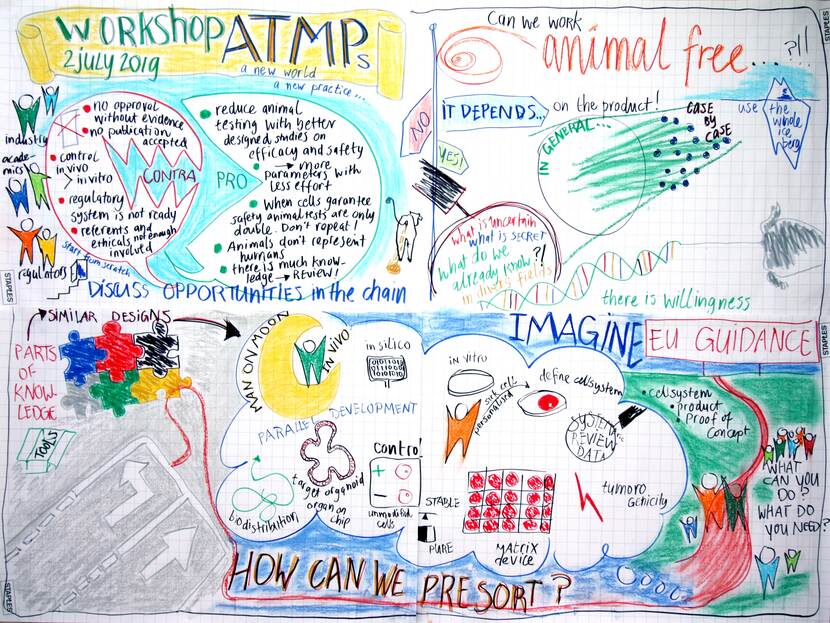 WORKSHOP ATMPs
2 july 2019
a new world
a new practice...
industry
acade-
mics
regulators
no approval
without evidence
no publication
accepted
control
in vivo
> in vitro
regulatory
system is not ready
referents and
ethicals not enough
involved
CONTRA
PRO
reduce animal
testing with better
designed studies on
efficacy and safety
→ more
parameters with
less effort
When cells garantee
safety animal tests are only
double. Don't repeat!
Animals don't represent
humans
there is much know-
ledge → REVIEW!
Start from scratch
DISCUSS OPPORTUNITIES in the chain
STAPLES
Can we work
animal free...?!!
NO
IT DEPENDS... on the product!
YES!
IN GENERAL...
CASE
BY
CASE
use the
whole
ice
berg
what is uncertain
what is SECRET
what do we
already know?!
in divers fields
there is willingness
STAPLES
SIMILAR DESIGNS
PARTS
OF
KNOW-
LEDGE
TOOLS
MAN ON MOON
IN VIVO
in silico
PARALLEL DEVELOPMENT
biodistribution
target organoid
organ on
chip
Control
+
−
unmodified
cells
STAPLES
IMAGINE EU GUIDANCE
STAPLES
IN VITRO
sick cell
personalized
define cellsystem
SYSTEMATIC
REVIEW
DATA
STABLE
PURE
MATRIX
device
tumoro
genicity
cellsystem
product
Proof of
Concept
WHAT
CAN YOU
DO?
WHAT DO
YOU NEED?
HOW CAN WE PRESORT?